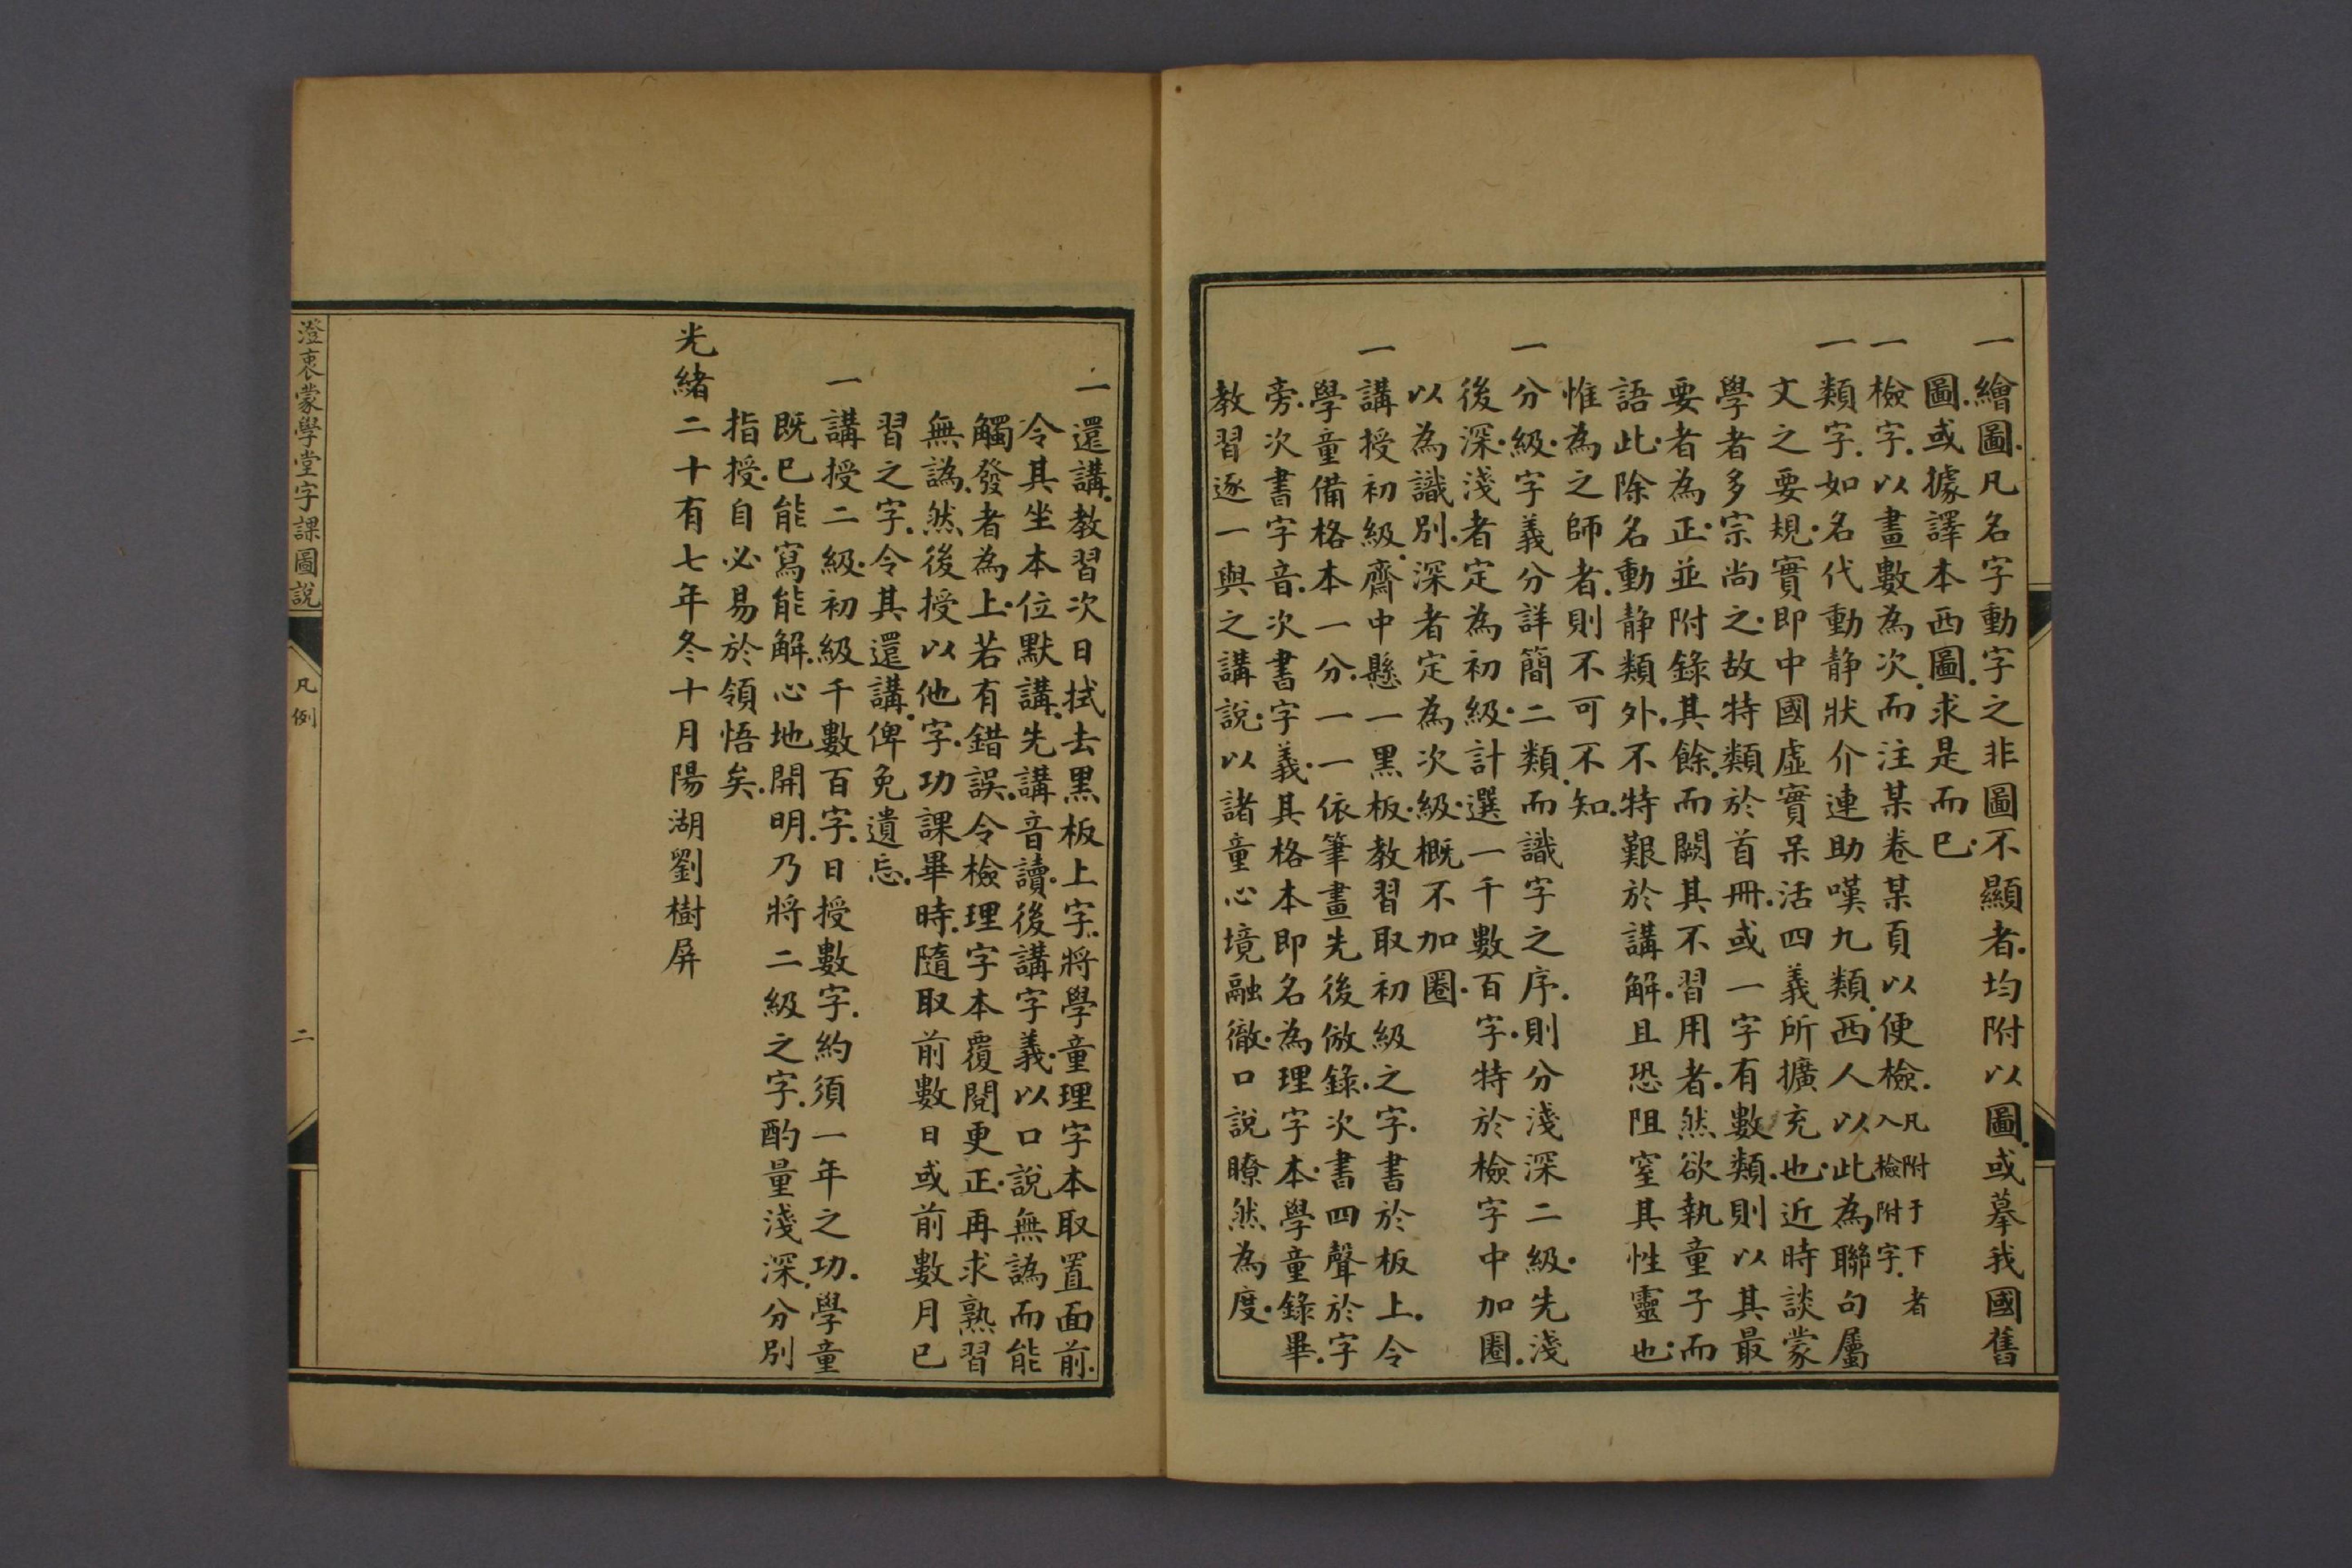 一繪圖.凡名字動字之非圖不顯者.均附以圖.或摹我國舊
圖.或據譯本西圖.求是而已.
一檢字.以畫數為次.而注某卷某頁以便檢.凡附于下者入檢附字.
一類字.如名代動静狀介連助嘆九類.西人以此為聯句屬
文之要規.實即中國虛實呆活四義所擴充也.近時談蒙
學者多宗尚之.故特類於首冊.或一字有數類.則以其最
要者為正.並附錄其餘.而闕其不習用者.然欲執童子而
語此.除名動静類外.不特艱於講解.且恐阻窒其性靈也.
惟為之師者.則不可不知.
一分級.字義分詳簡二類.而識字之序.則分淺深二級.先淺
後深.淺者定為初級.計選一千數百字.特於檢字中加圈.
以為識別.深者定為次級.概不加圈.
一講授初級.齋中懸一黑板.教習取初級之字.書於板上.令
學童備格本一分.一一依筆畫先後倣錄.次書四聲於字
旁.次書字音.次書字義.其格本即名為理字本.學童錄畢.
教習逐一與之講說.以諸童心境融徹.口說瞭然為度.
一還講.教習次日拭去黑板上字.將學童理字本取置面前.
令其坐本位默講.先講音讀.後講字義.以口說無譌而能
觸發者為上.若有錯誤.令檢理字本覆閱更正.再求熟習
無譌.然後授以他字.功課畢時.隨取前數日或前數月已
習之字.令其還講.俾免遺忘.
一講授二級.初級千數百字.日授數字.約須一年之功.學童
既已能寫能解.心地開明.乃將二級之字.酌量淺深.分別
指授.自必易於領悟矣.
光緒二十有七年冬十月陽湖劉樹屏
澄衷蒙學堂字課圖說
凡例
二